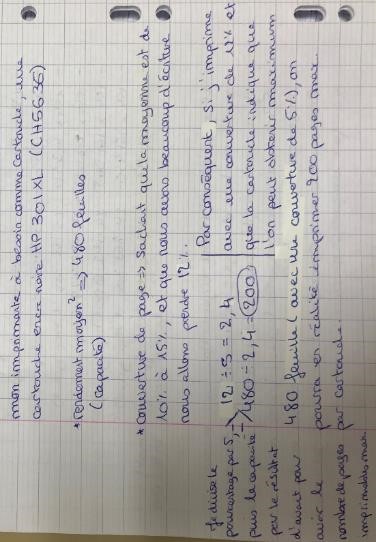 mon imprimante à besoin comme cartouche, une
cartouche encre noire HP 301 XL (CH563E)
*rendement moyen² => 480 feuilles
(capacité)
*couverture de page => Sachant que la moyenne est de
10% à 15%, et que nous avons beaucoup d'écriture
nous allons prendre 12%.
Je divise le
pourcentage par 5,
puis la capacité
par le résultat
d'avant pour
avoir le
nombre de pages
imprimables max
12 ÷ 5 = 2,4
480 ÷ 2,4 = 200
Par conséquent, si j'imprime
avec une couverture de 12% et
que la cartouche indique que
l'on peut obtenir maximum
480 feuilles (avec une couverture de 5%), on
pourra en réalité imprimer 200 pages max
par cartouche.